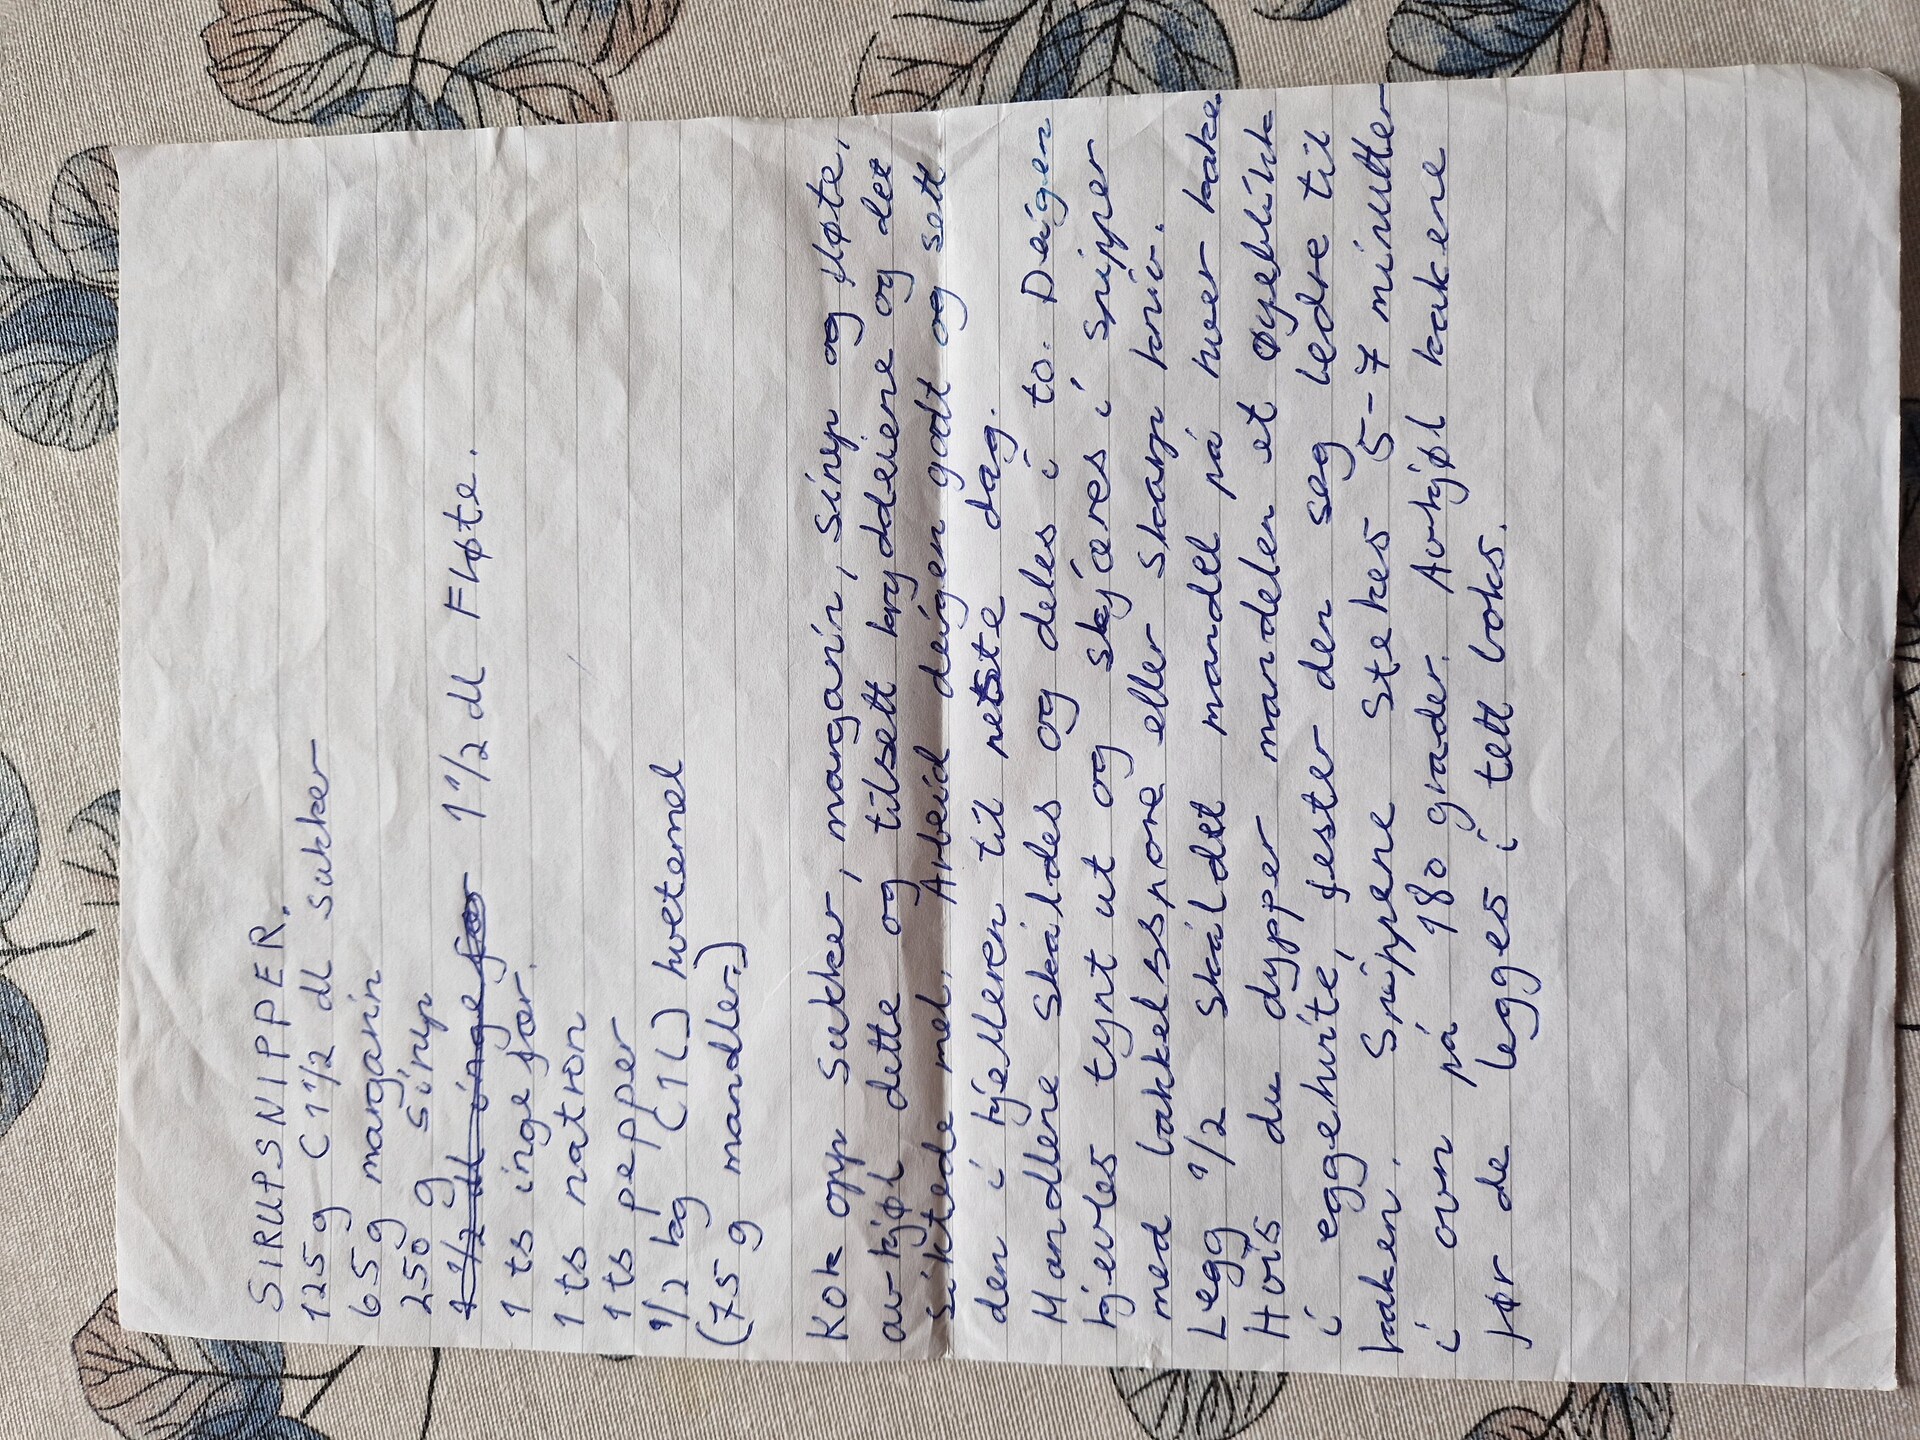 SIRUPSNIPPER.
125 g (1 1/2 dl sukker
65 g margarin
250 g sirup
1 1/2 dl ingefær 1 1/2 dl Fløte.
1 ts ingefær.
1 ts natron
1 ts pepper
1/2 kg (1 l) hvetemel
(75 g mandler.)
Kok opp sukker, margarin, sirup og fløte,
avkjøl dette og tilsett krydderiene og det
siktede mel. Arbeid deigen godt og sett
den i kjelleren til neste dag.
Mandlene skåldes og deles i to. Deigen
kjevles tynt ut og skjæres i snipper
med bakkelsspore eller skarp kniv.
Legg 1/2 skåldet mandel på hver kake.
Hvis du dypper mandelen et øyeblikk
i eggehvite, fester den seg bedre til
kaken. Snippene stekes 5-7 minutter
i ovn på 180 grader. Avkjøl kakene
før de legges i tett boks.